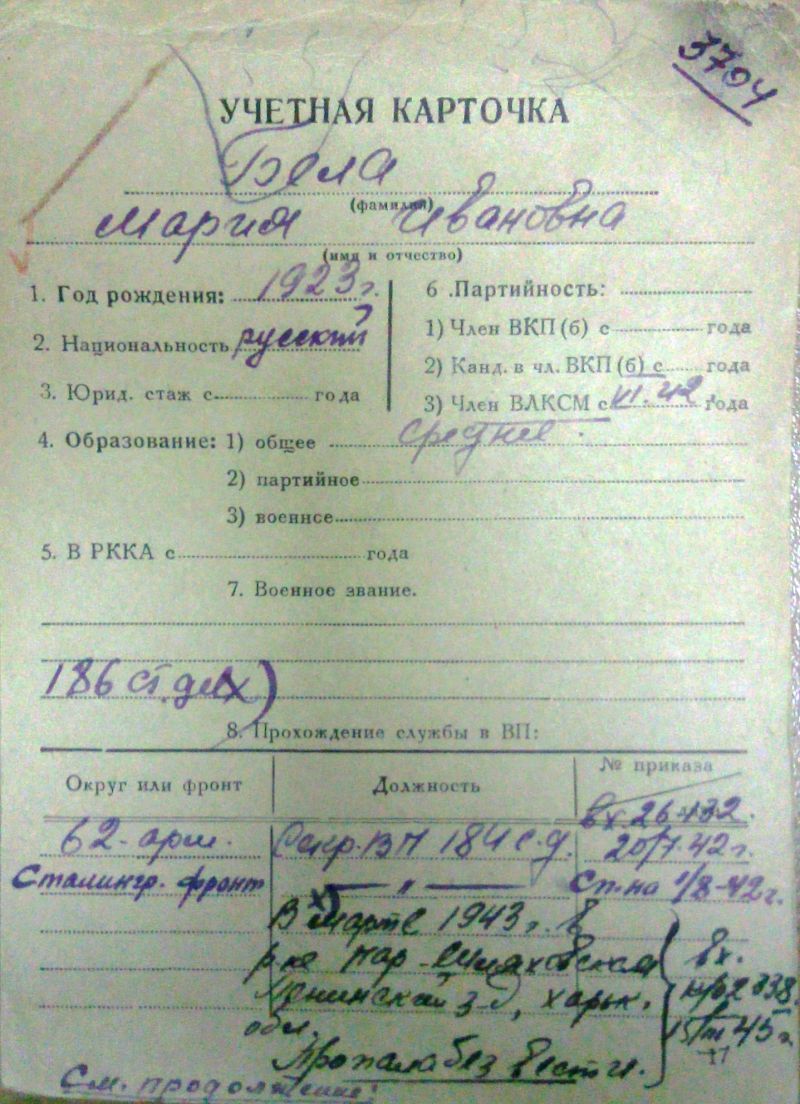 3704
УЧЕТНАЯ КАРТОЧКА
Бела
(фамилия)
Мария Ивановна
(имя и отчество)
1. Год рождения: 1923 г.
2. Национальность русский
3. Юрид. стаж с года
6 .Партийность:
1) Член ВКП (б) с года
2) Канд. в чл. ВКП (б) с года
3) Член ВЛКСМ с VI. 42 года
4. Образование: 1) общее среднее.
2) партийное
3) военнсе
5. В РККА с года
7. Военное звание.
186 ст.
8. Прохождение службы в ВП:
Округ или фронт Должность № приказа
вх 26432.
62-арм. Секр. ВП 184 с.д. 20/V. 42 г.
Сталингр. фронт — " — Сп. на 1/8-42 г.
В марте 1943 г. в
р-не
Ленинский з-д, харьк.
обл.
вх.
45 г.
Пропала без вести.
См. продолжение: